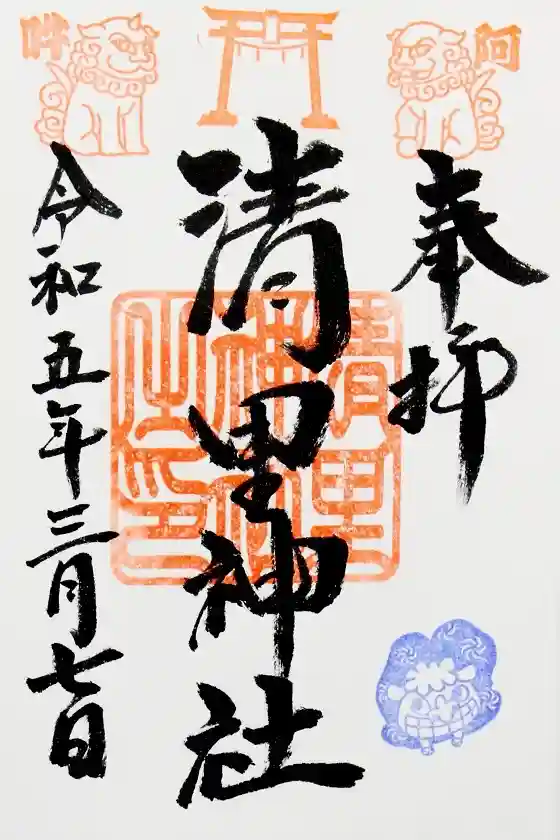 阿
吽
奉拝
清里神社
清里神社之印
令和五年三月七日